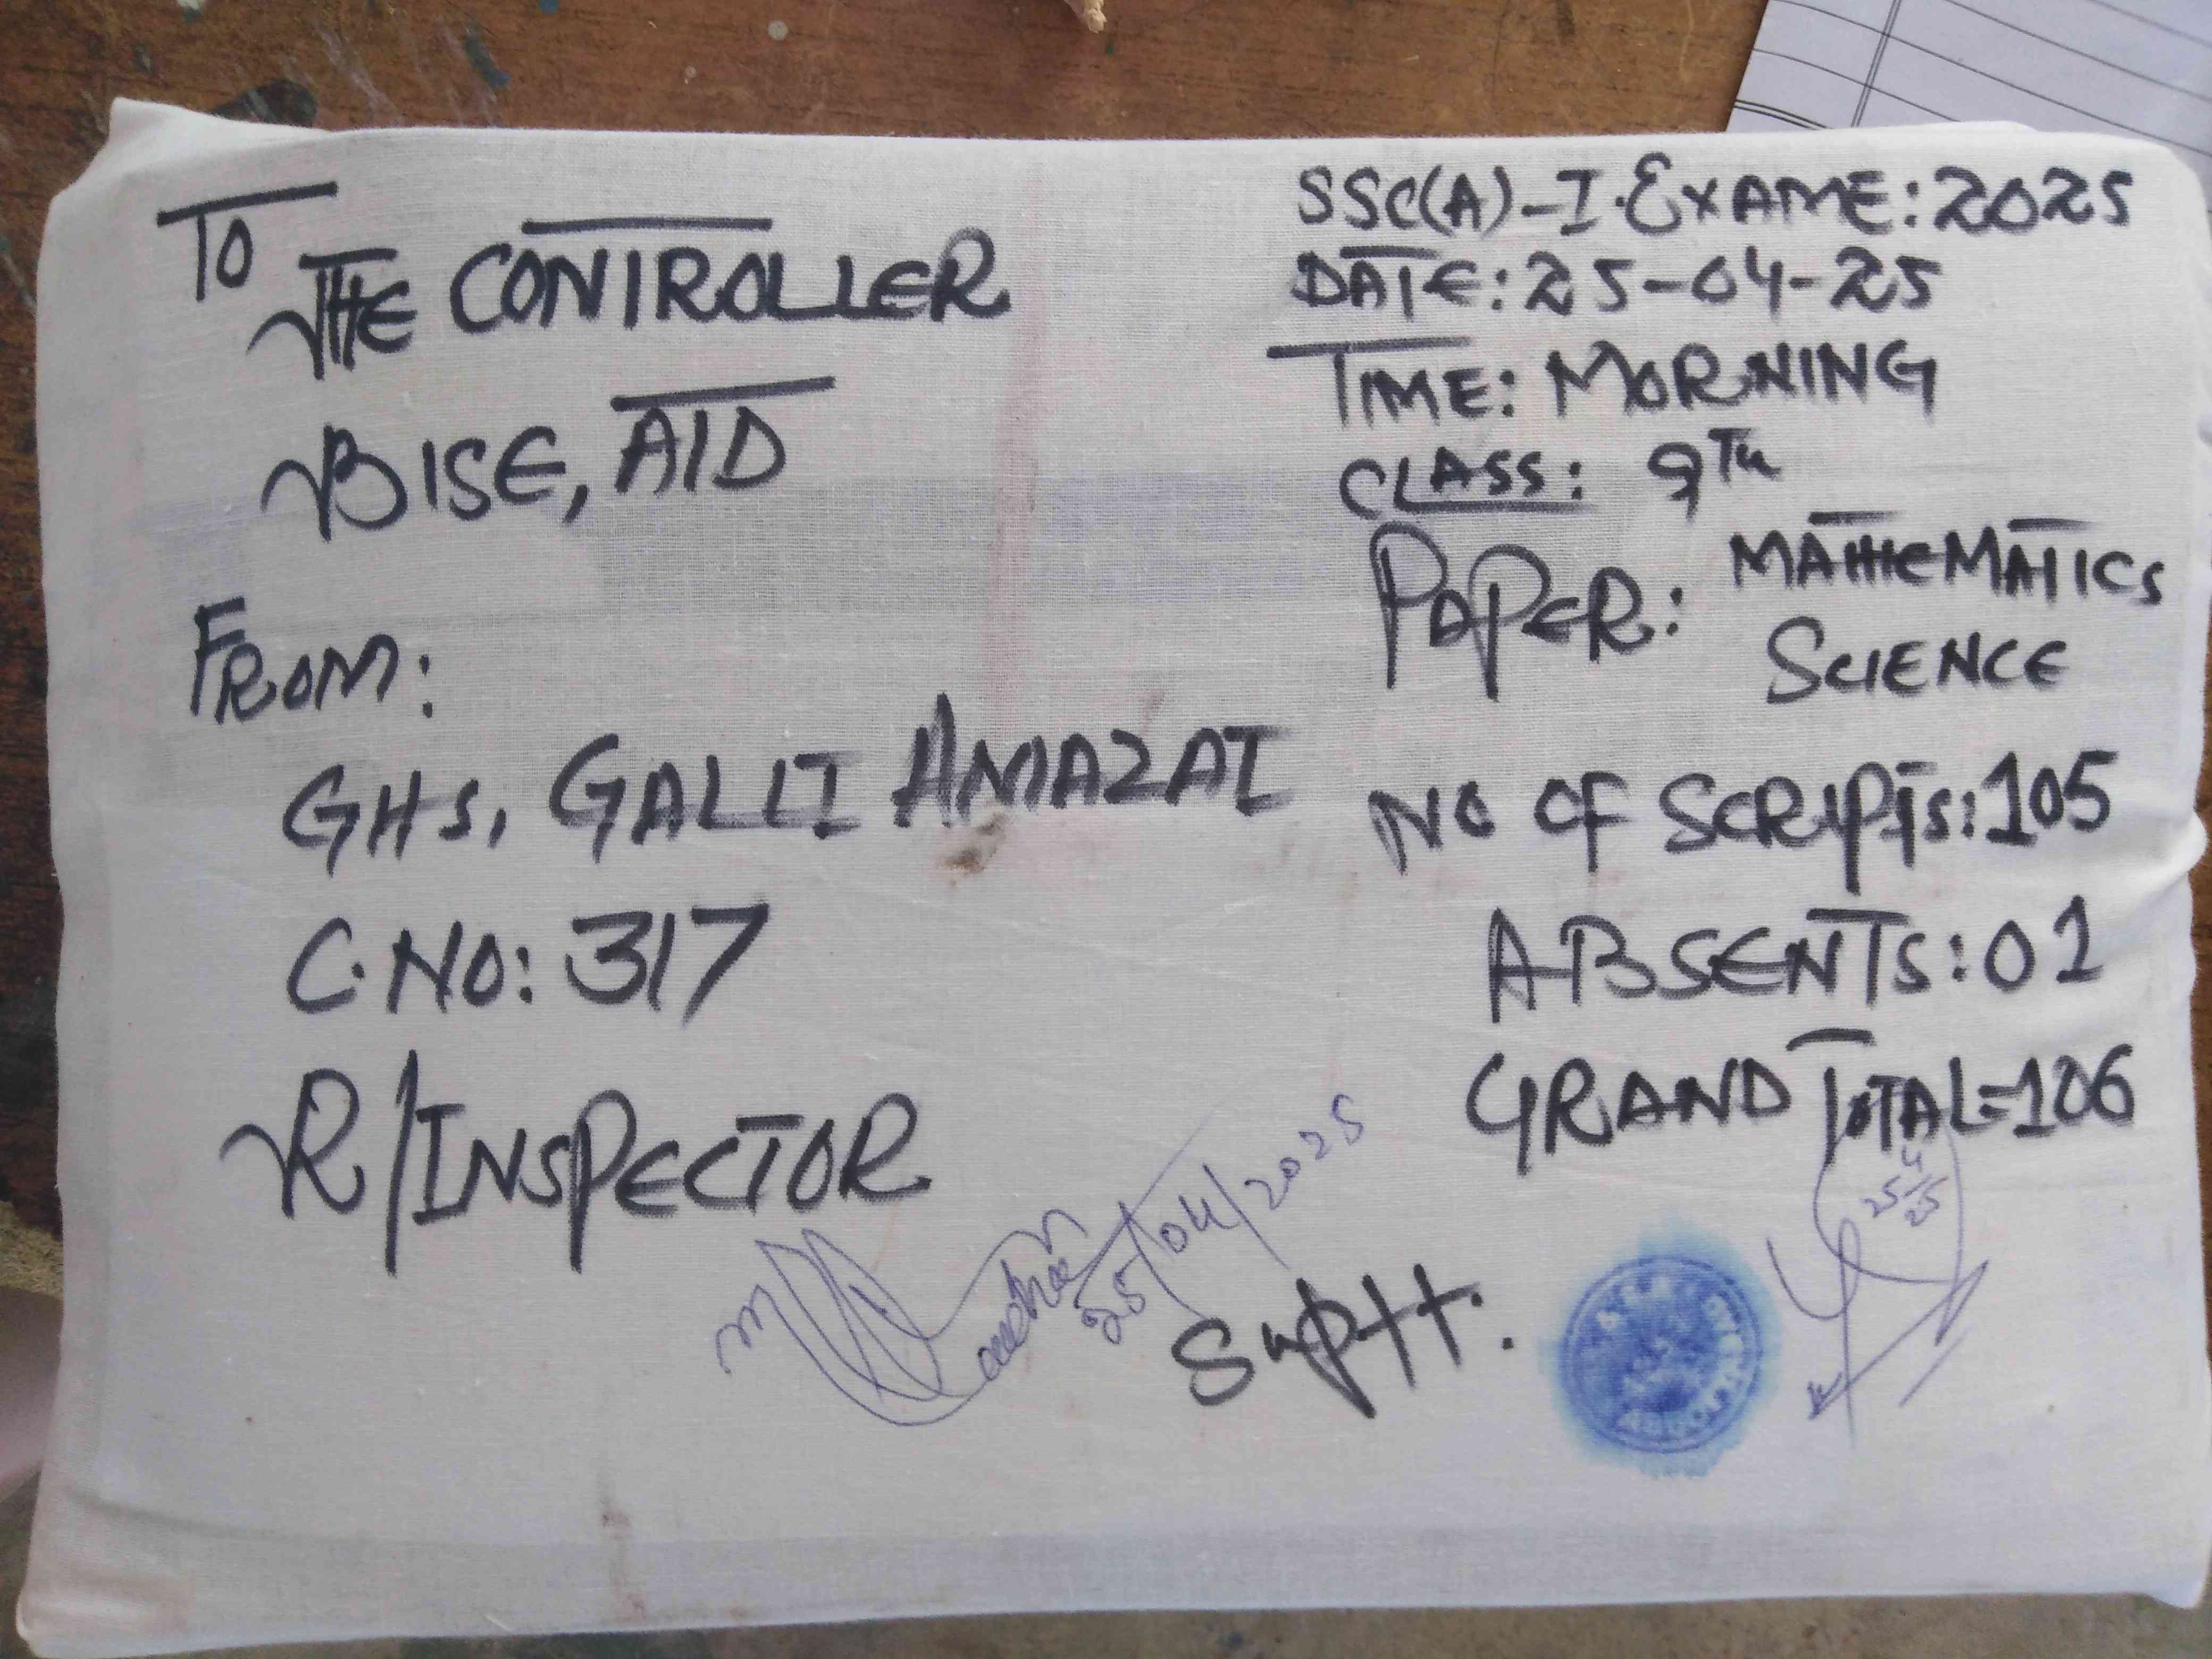 TO
THE CONTROLLER
BISE, A/D
FROM:
GHS, GALLI AMAZAI
C.NO: 317
R/INSPECTOR
25/04/2025
SSC(A)-I.EXAME:2025
DATE:25-04-25
TIME: MORNING
CLASS: 9TH
PAPER: MATHEMATICS
SCIENCE
NO OF SCRIPTS:105
ABSENTS:01
GRAND TOTAL=106
Suptt.
25/4/25